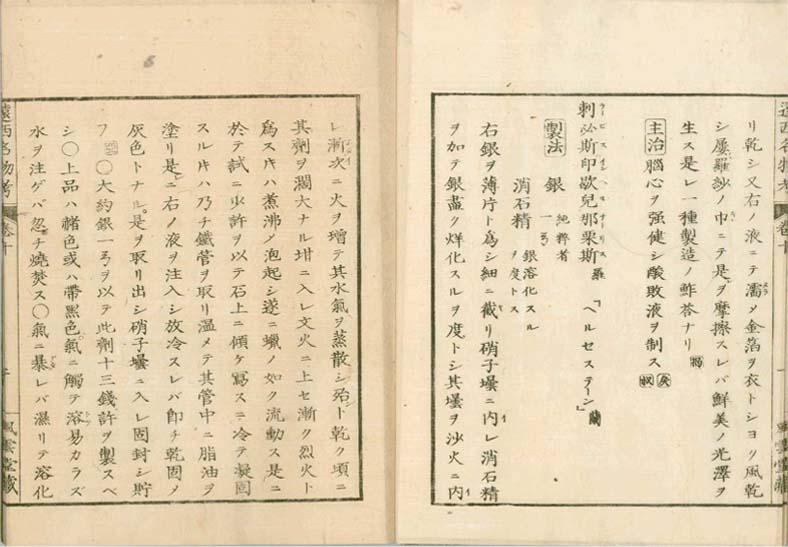 リ乾シ又右ノ液ニテ濡メ金箔ヲ衣トシヨク風乾
シ屡羅紗ノ巾ニテ是ヲ摩擦スレバ鮮美ノ光澤ヲ
生ス是レ一種製造ノ鮓荅ナリ
主治 腦心ヲ强健シ酸敗液ヲ制ス
刺必斯印歇兒那栗斯 羅 「ヘルセステーン」 蘭
製法 銀 純粹者 一ヲ
消石精 銀溶化スルヲ度トス
右銀ヲ薄片ト爲シ細ニ截リ硝子壜ニ内レ消石精
ヲ加テ銀盡ク烊化スルヲ度トシ其壜ヲ沙火ニ内
レ漸次ニ火ヲ增テ其水氣ヲ蒸散シ殆ト乾ク頃ニ
其劑ヲ濶大ナル坩ニ入レ文火ニ上セ漸ク烈火ト
爲スキハ煮沸ノ泡起シ遂ニ蠟ノ如ク流動ス是ニ
於テ試ニ少許ヲ以テ石上ニ傾ケ寫スニ冷テ凝固
スルキハ乃チ鐵管ヲ取リ溫メテ其管中ニ脂油ヲ
塗リ是ニ右ノ液ヲ注入シ放冷スレバ卽チ乾固メ
灰色トナル是ヲ取リ出シ硝子壜ニ入レ固封シ貯
フ ○大約銀一ヲ以テ此劑十三錢許ヲ製スベ
シ○上品ハ褚色或ハ帶黑色氣ニ觸テ溶易カラズ
水ヲ注ゲバ忽チ燒焚ス○氣ニ暴レバ濕リテ溶化
遠西名物考 卷十
風雲堂藏